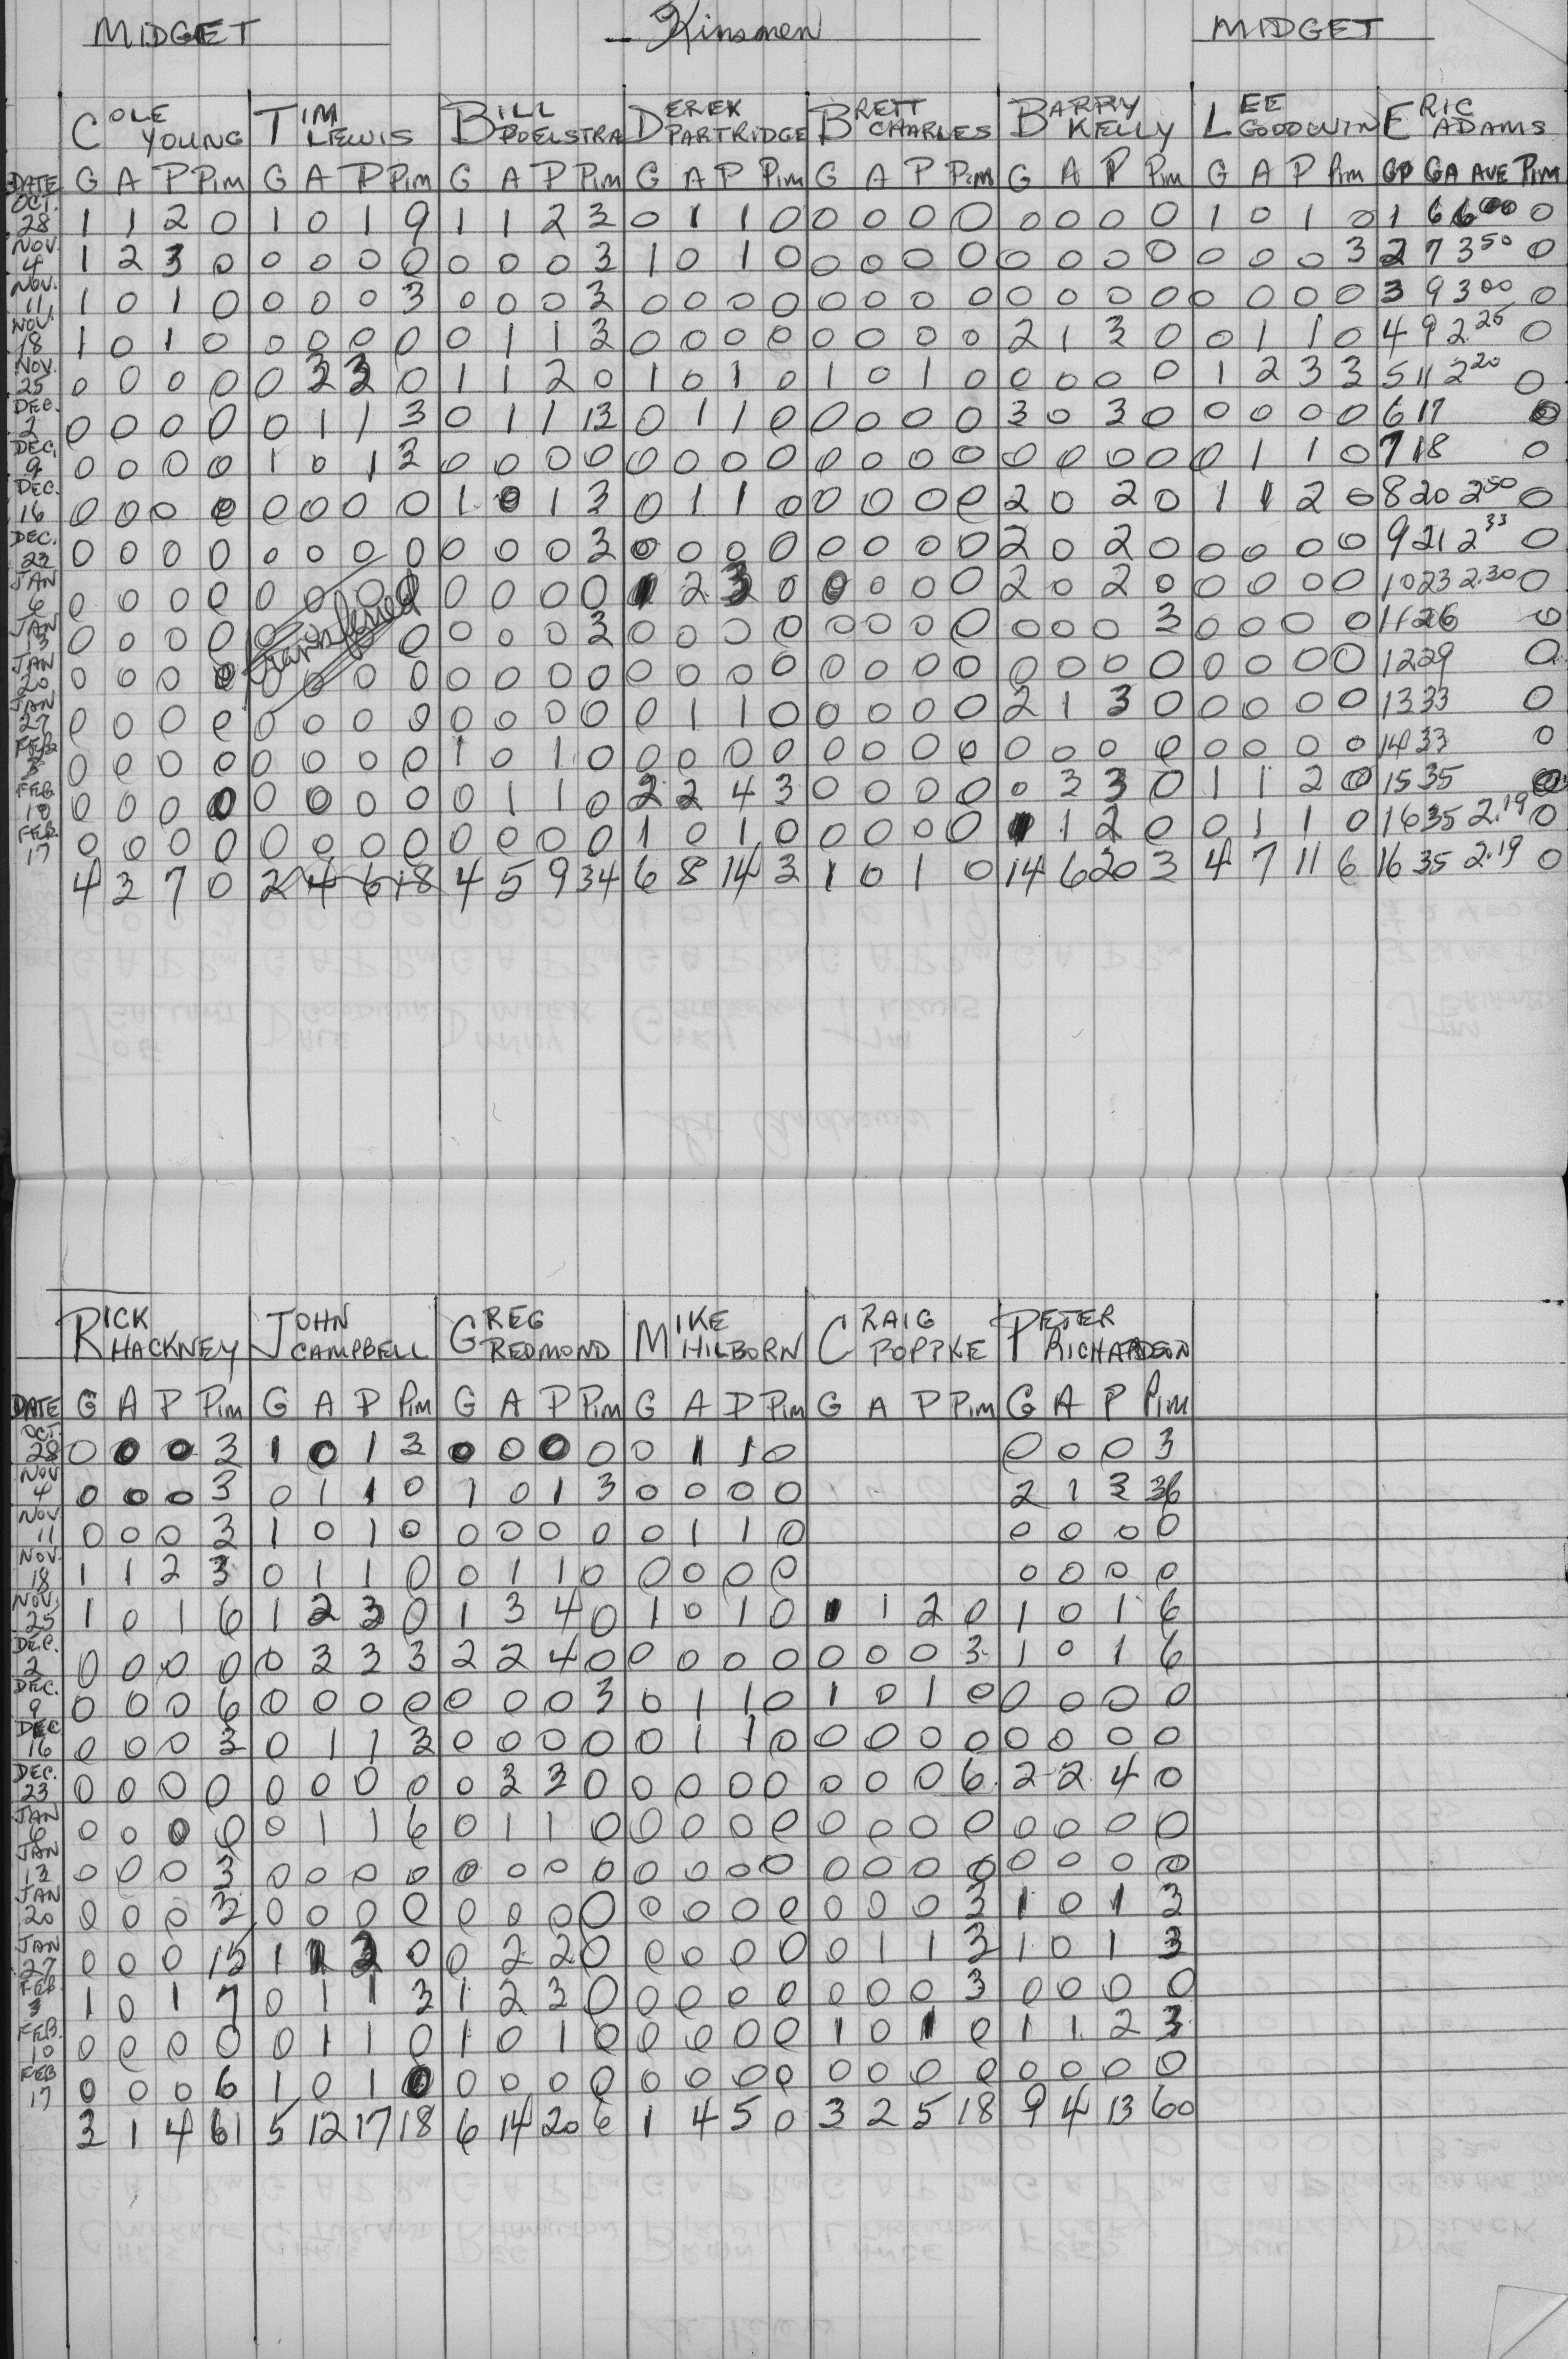 MIDGET Kinsmen MIDGET
COLE YOUNG TIM LEWIS BILL POELSTRA DEREK PARTRIDGE BRETT CHARLES BARRY KELLY LEE GOODWIN ERIC ADAMS
DATE G A P Pim G A P Pim G A P Pim G A P Pim G A P Pim G A P Pim G A P Pim GP GA AVE Pim
OCT. 28 1 1 2 0 1 0 1 9 1 1 2 3 0 1 1 0 0 0 0 0 0 0 0 0 1 0 1 0 1 6 6.00 0
NOV. 4 1 2 3 0 0 0 0 0 0 0 0 3 1 0 1 0 0 0 0 0 0 0 0 0 0 0 0 3 2 7 3.50 0
NOV. 11 1 0 1 0 0 0 0 3 0 0 0 3 0 0 0 0 0 0 0 0 0 0 0 0 0 0 0 0 3 9 3.00 0
NOV. 18 1 0 1 0 0 0 0 0 0 1 1 3 0 0 0 0 0 0 0 0 2 1 3 0 0 1 1 0 4 9 2.25 0
NOV. 25 0 0 0 0 0 3 3 0 1 1 2 0 1 0 1 0 1 0 1 0 0 0 0 0 1 2 3 3 5 11 2.20 0
DEC. 2 0 0 0 0 0 1 1 3 0 1 1 13 0 1 1 0 0 0 0 0 3 0 3 0 0 0 0 0 6 17 0
DEC. 9 0 0 0 0 1 0 1 3 0 0 0 0 0 0 0 0 0 0 0 0 0 0 0 0 0 1 1 0 7 18 0
DEC. 16 0 0 0 0 0 0 0 0 1 0 1 3 0 1 1 0 0 0 0 0 2 0 2 0 1 1 2 0 8 20 2.50 0
DEC. 23 0 0 0 0 0 0 0 0 0 0 0 3 0 0 0 0 0 0 0 0 2 0 2 0 0 0 0 0 9 21 2.33 0
JAN 6 0 0 0 0 0 0 0 0 0 0 0 0 1 2 3 0 0 0 0 0 2 0 2 0 0 0 0 0 10 23 2.30 0
JAN 13 0 0 0 0 0 transferred 0 0 0 0 3 0 0 0 0 0 0 0 0 0 0 0 3 0 0 0 0 11 26 0
JAN 20 0 0 0 0 0 0 0 0 0 0 0 0 0 0 0 0 0 0 0 0 0 0 0 0 0 0 0 0 12 29 0
JAN 27 0 0 0 0 0 0 0 0 0 0 0 0 0 1 1 0 0 0 0 0 2 1 3 0 0 0 0 0 13 33 0
FEB 3 0 0 0 0 0 0 0 0 1 0 1 0 0 0 0 0 0 0 0 0 0 0 0 0 0 0 0 0 14 33 0
FEB 10 0 0 0 0 0 0 0 0 0 1 1 0 2 2 4 3 0 0 0 0 0 3 3 0 1 1 2 0 15 35 0
FEB. 17 0 0 0 0 0 0 0 0 0 0 0 0 1 0 1 0 0 0 0 0 1 1 2 0 0 1 1 0 16 35 2.19 0
4 3 7 0 2 4 6 18 4 5 9 34 6 8 14 3 1 0 1 0 14 6 20 3 4 7 11 6 16 35 2.19 0
RICK HACKNEY JOHN CAMPBELL GREG REDMOND MIKE HILBORN CRAIG POPPKE PETER RICHARDSON
DATE G A P Pim G A P Pim G A P Pim G A P Pim G A P Pim G A P Pim
OCT. 28 0 0 0 3 1 0 1 3 0 0 0 0 0 1 1 0 0 0 0 3
NOV 4 0 0 0 3 0 1 1 0 1 0 1 3 0 0 0 0 2 1 3 36
NOV 11 0 0 0 3 1 0 1 0 0 0 0 0 0 1 1 0 0 0 0 0
NOV. 18 1 1 2 3 0 1 1 0 0 1 1 0 0 0 0 0 0 0 0 0
NOV. 25 1 0 1 6 1 2 3 0 1 3 4 0 1 0 1 0 1 1 2 0 1 0 1 6
DEC. 2 0 0 0 0 0 3 3 3 2 2 4 0 0 0 0 0 0 0 0 3 1 0 1 6
DEC. 9 0 0 0 6 0 0 0 0 0 0 0 3 0 1 1 0 1 0 1 0 0 0 0 0
DEC 16 0 0 0 3 0 1 1 3 0 0 0 0 0 1 1 0 0 0 0 0 0 0 0 0
DEC. 23 0 0 0 0 0 0 0 0 0 3 3 0 0 0 0 0 0 0 0 6 2 2 4 0
JAN 6 0 0 0 0 0 1 1 6 0 1 1 0 0 0 0 0 0 0 0 0 0 0 0 0
JAN 13 0 0 0 3 0 0 0 0 0 0 0 0 0 0 0 0 0 0 0 0 0 0 0 0
JAN 20 0 0 0 3 0 0 0 0 0 0 0 0 0 0 0 0 0 0 0 3 1 0 1 3
JAN 27 0 0 0 15 1 2 0 0 2 2 0 0 0 0 0 0 1 1 3 1 0 1 3
FEB 3 1 0 1 7 0 1 1 3 1 2 3 0 0 0 0 0 0 0 0 3 0 0 0 0
FEB. 10 0 0 0 0 0 1 1 0 1 0 1 0 0 0 0 0 1 0 1 0 1 1 2 3
FEB 17 0 0 0 6 1 0 1 0 0 0 0 0 0 0 0 0 0 0 0 0 0 0 0 0
3 1 4 61 5 12 17 18 6 14 20 6 1 4 5 0 3 2 5 18 9 4 13 60